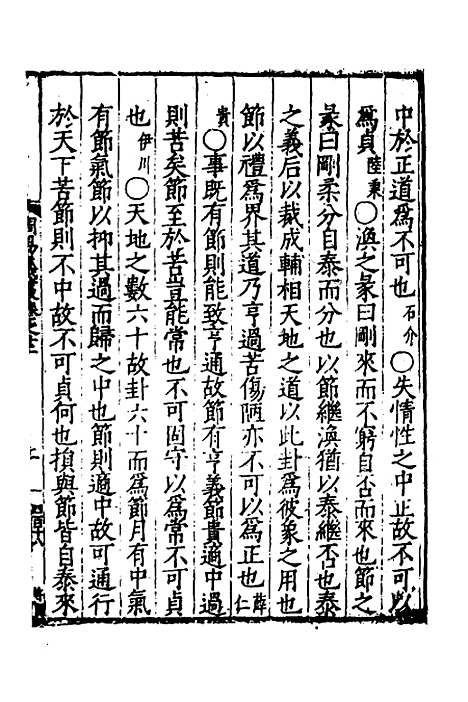 中於正道為不可也石介○失情性之中正故不可以
為貞陸秉○渙之彖曰剛來而不窮自否而來也節之
彖曰剛柔分自泰而分也以節繼渙猶以泰繼否也泰
之義后以裁成輔相天地之道以此卦為彼象之用也
節以禮為界其道乃亨過苦傷陋亦不可以為正也薛仁
貴○事既有節則能致亨通故節有亨義節貴適中過
則苦矣節至於苦豈能常也不可固守以為常不可貞
也伊川○天地之數六十故卦六十而為節月有中氣
有節氣節以抑其過而歸之中也節則適中故可通行
於天下苦節則不中故不可貞何也損與節皆自泰來